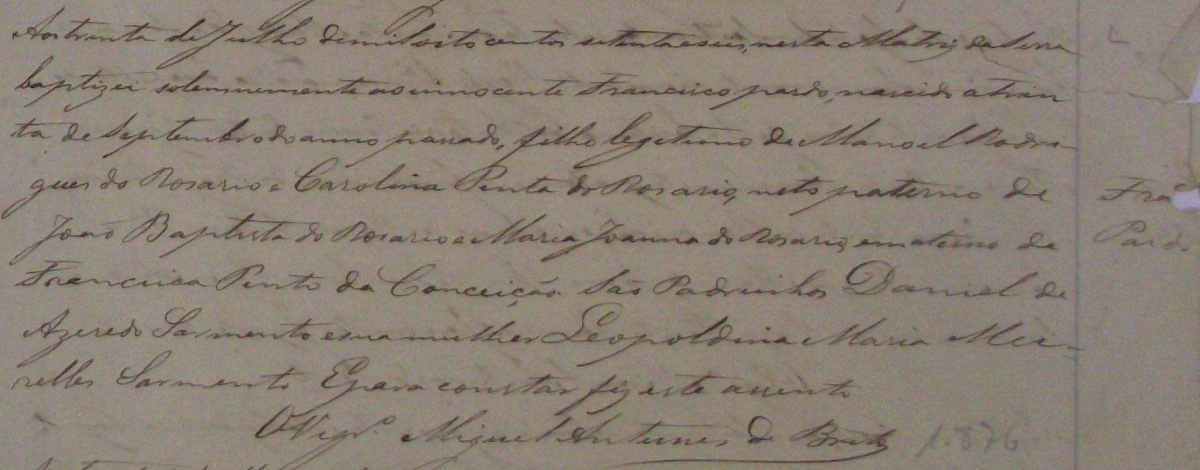 Aos trinta de Julho de mil oito centos setenta e seis, nesta Matriz da Serra
baptizei solemnemente ao innocente Francisco pardo, nascido a trin
ta de Septembro do anno passado, filho legitimo de Manoel Rodri-
gues do Rosario e Carolina Pinta do Rosario, neto paterno de
João Baptista do Rosario e Maria Joanna do Rosario, e materno de
Francisca Pinto da Conceição. São Padrinhos Daniel de
Azeredo Sarmento e sua mulher Leopoldina Maria Mei-
relles Sarmento E para constar fiz este assento
O Vigr.º Miguel Antunes de Brito 1.876
Fra.co
Pardo